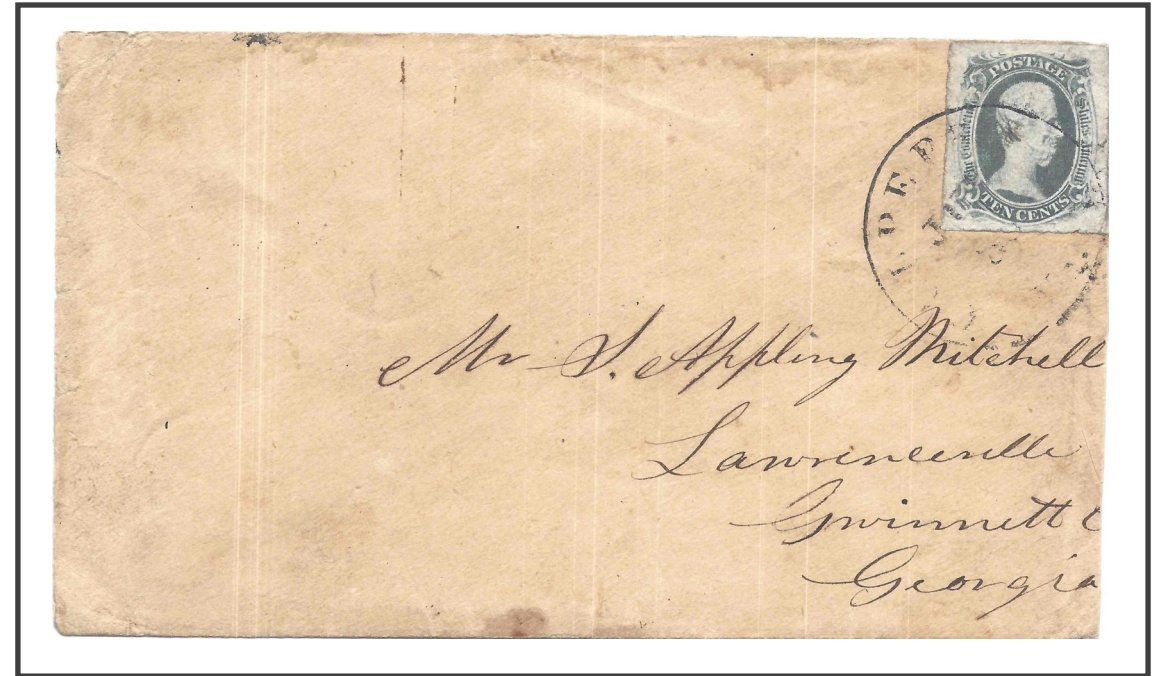 POSTAGE
The Confederate States America
TEN CENTS
Mr S. Appling Mitchell
Lawrenceville
Gwinnett C
Georgia